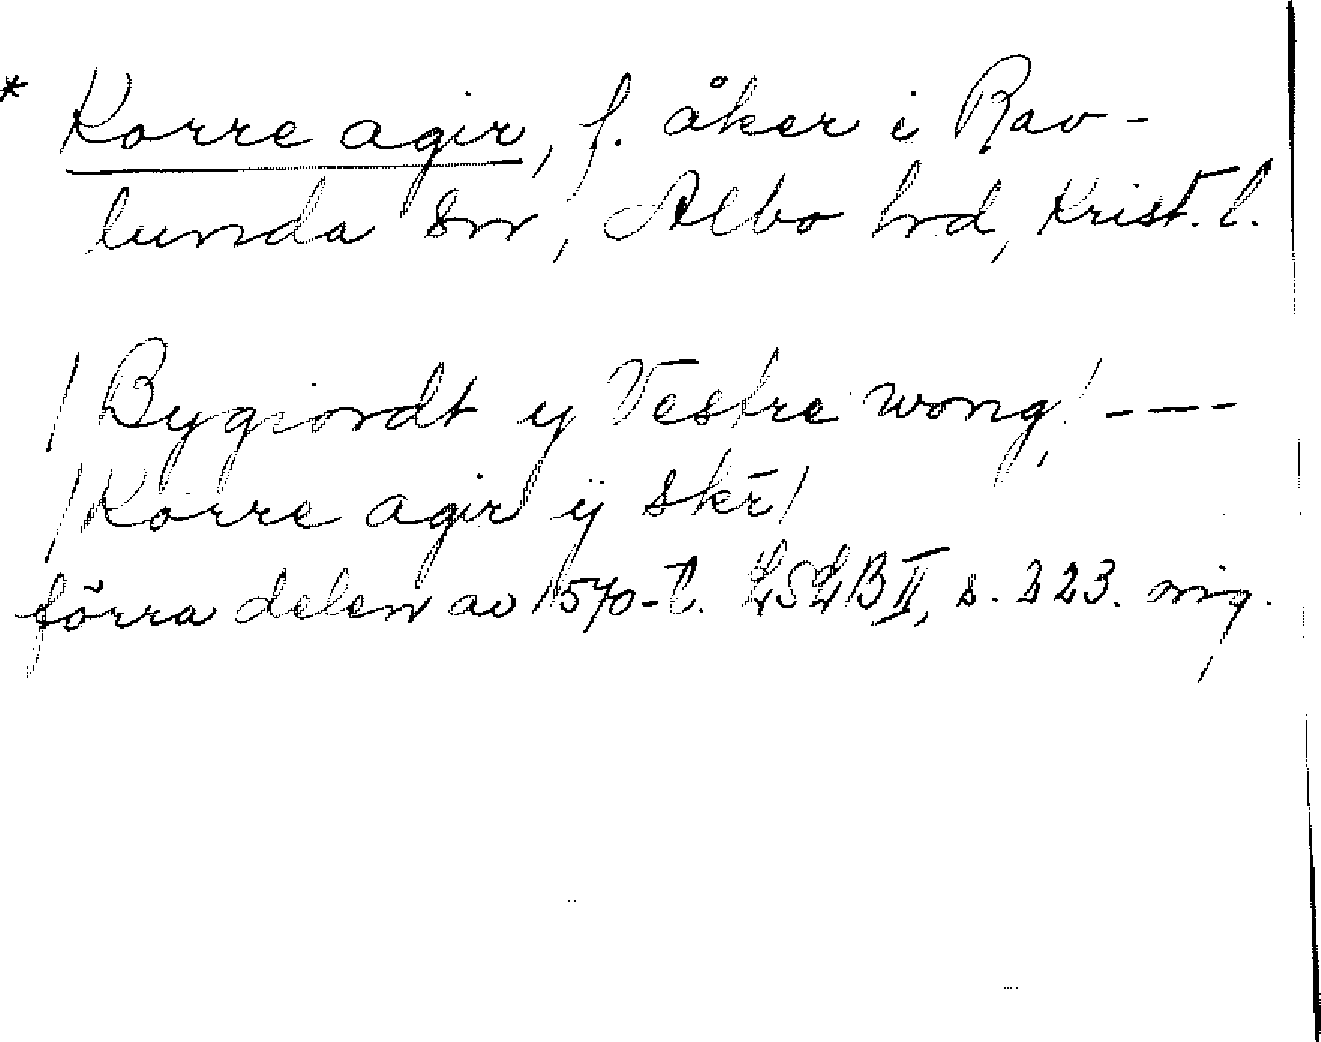 * Korre agir, f. åker i Rav-
lunda sn, Albo hd, Krist. l.
/ Bygiordt y Vestre wong / ----
/ Korre agir ÿ skr̄ /
förra delen av 1570-t. LSLB II, s. 323. mg.